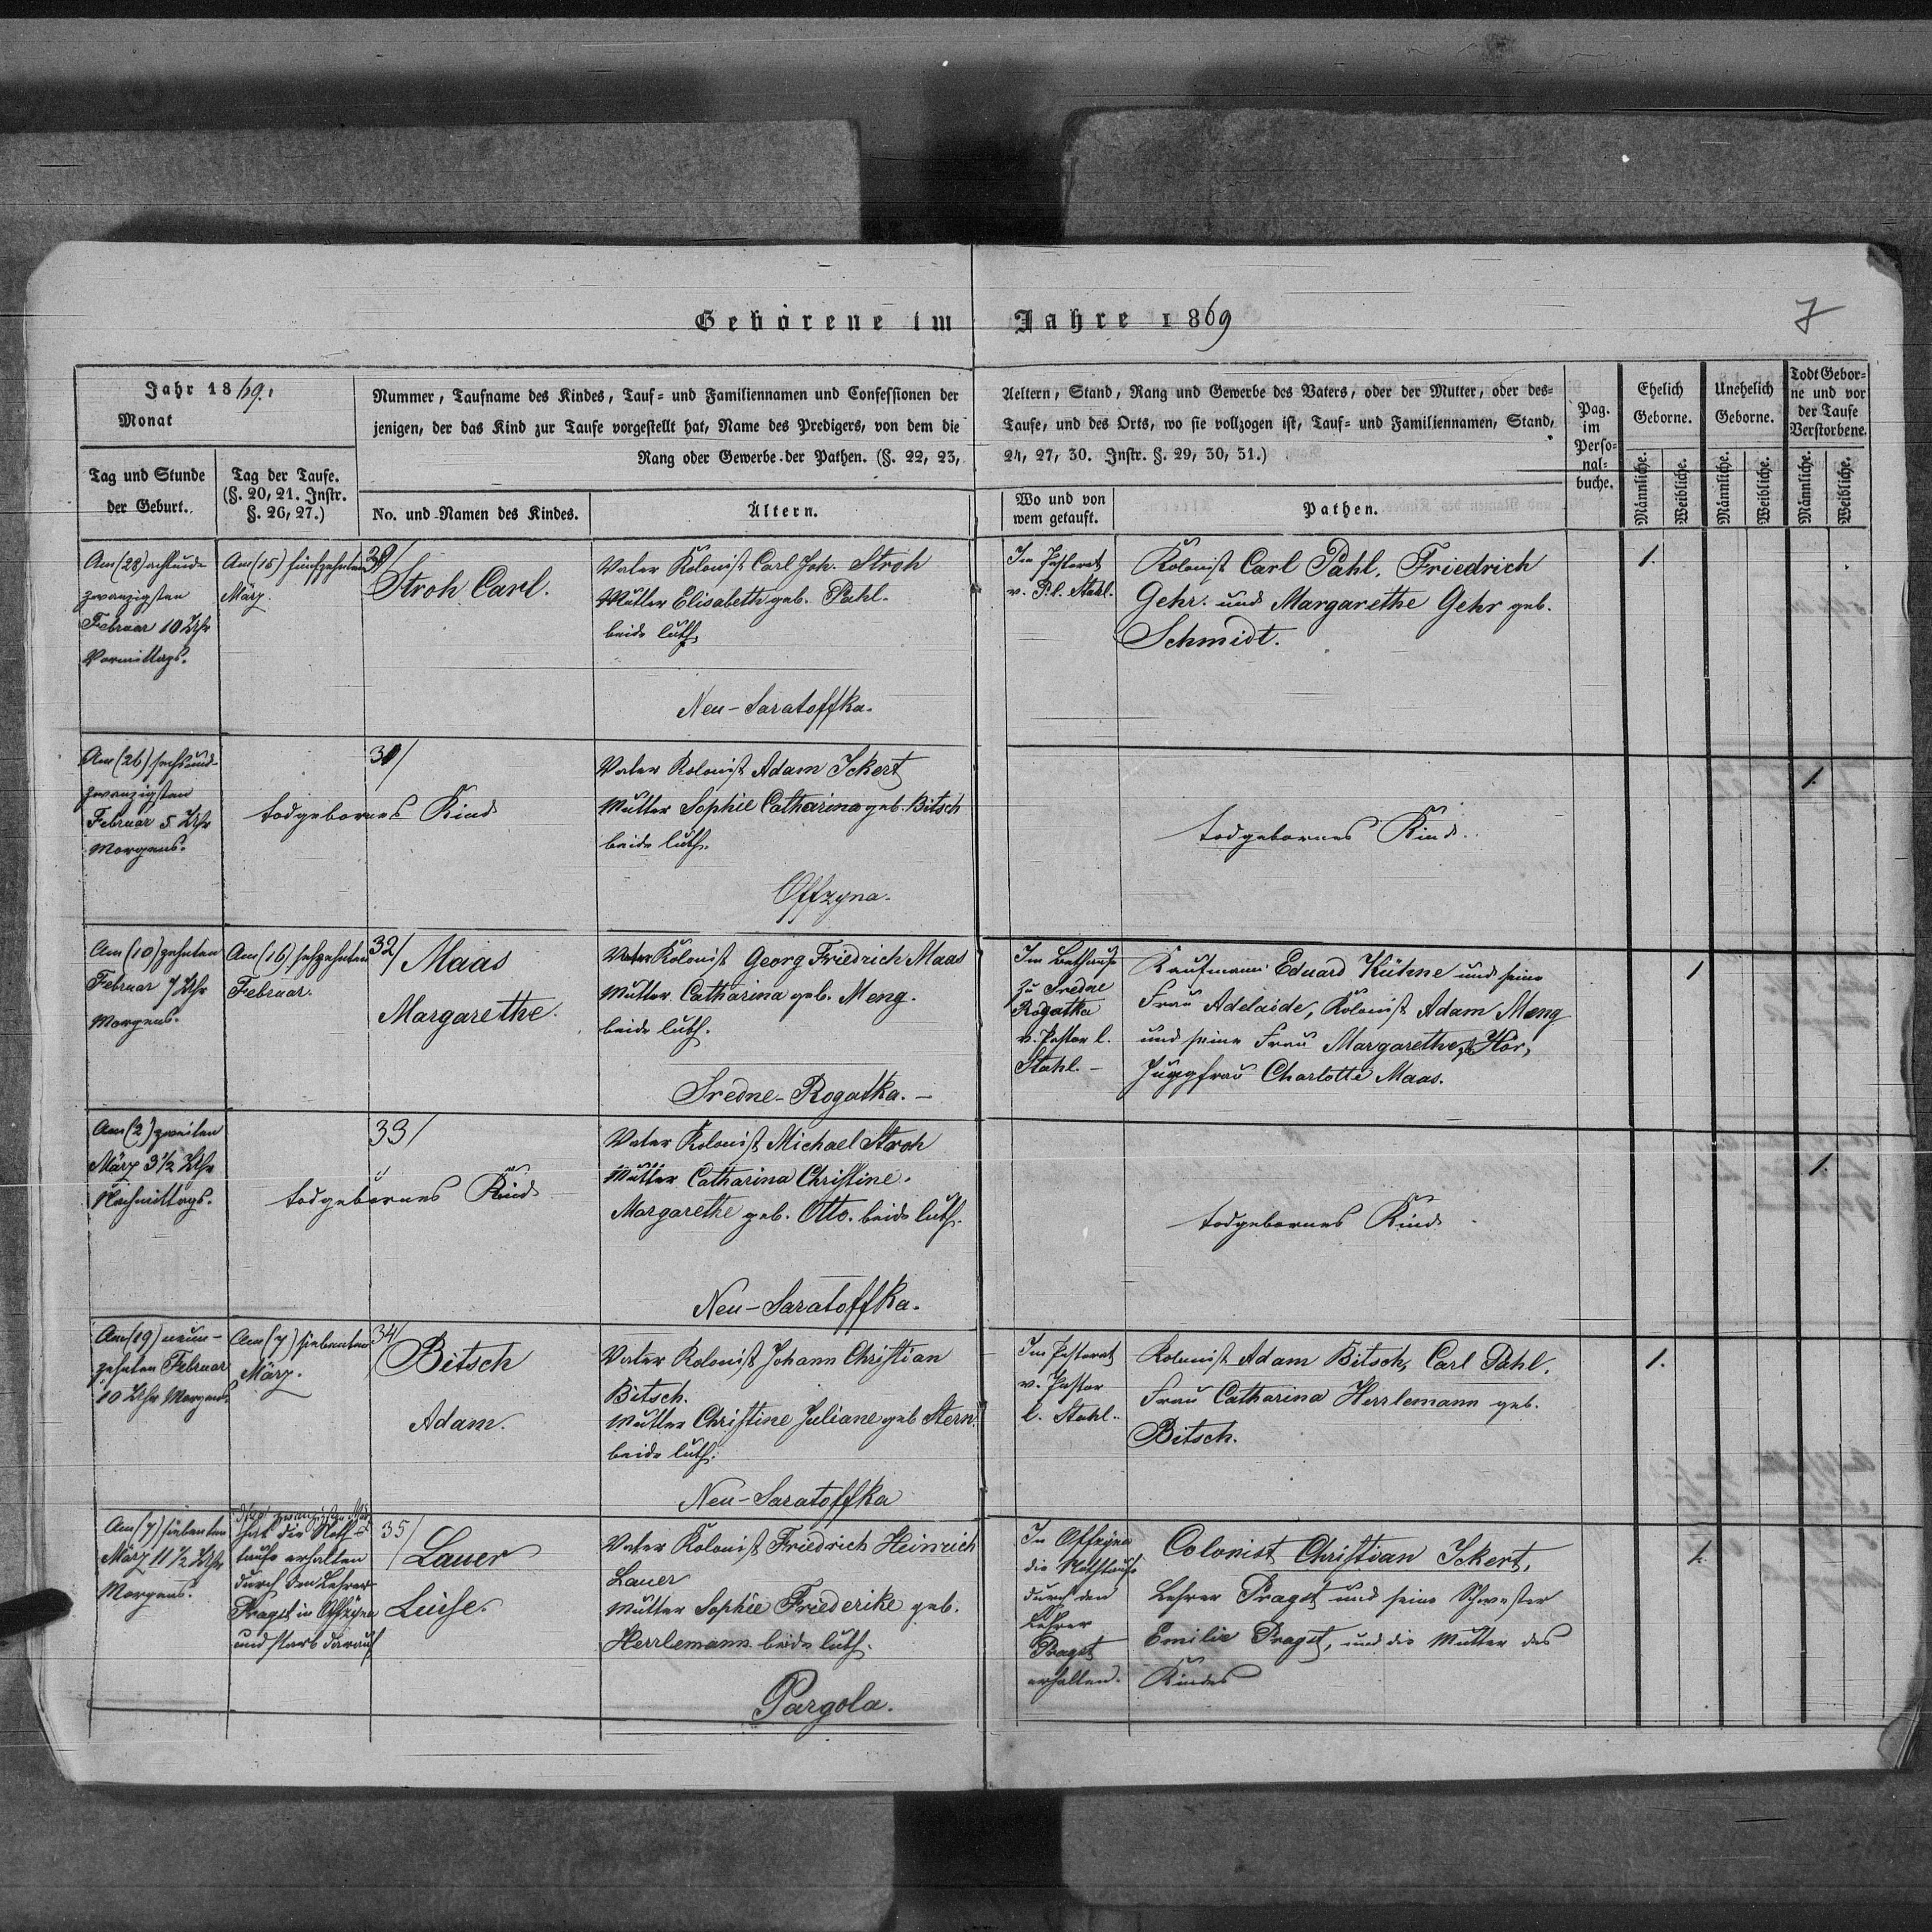 Geborene im Jahre 1869
7
Jahr 1869.
Monat
Tag und Stunde
der Geburt.
Tag der Taufe.
(§. 20, 21. Instr.
§. 26, 27.)
Nummer, Taufname des Kindes, Tauf- und Familiennamen und Confessionen der
jenigen, der das Kind zur Taufe vorgestellt hat, Name des Predigers, von dem die
Rang oder Gewerbe der Pathen. (§. 22, 23,
No. und Namen des Kindes.
Ältern.
Aeltern, Stand, Rang und Gewerbe des Vaters, oder der Mutter, oder des-
Taufe, und des Orts, wo sie vollzogen ist, Tauf- und Familiennamen, Stand,
24, 27, 30. Instr. §. 29, 30, 31.)
Wo und von
wem getauft.
Pathen.
Pag.
im
Perso-
nal-
buche.
Ehelich
Geborne.
Männliche.
Weibliche.
Unehelich
Geborne.
Männliche.
Weibliche.
Todt Gebor-
ne und vor
der Taufe
Verstorbene.
Männliche.
Weibliche.
Am (28) achtund
zwanzigsten
Februar 10 Uhr
Vormittags.
Am (15) fünfzehnten
März.
Stroh Carl.
Vater Kolonist Carl Joh. Stroh
Mutter Elisabeth geb. Pahl.
beide luth.
Neu-Saratoffka.
Im Pastorat
v. P. l. Stahl.
Kolonist Carl Pahl, Friedrich
Gehr. und Margarethe Gehr geb.
Schmidt.
1.
Am (26) sechsund-
zwanzigsten
Februar 5 Uhr
Morgens.
todgebornes Kind
Vater Kolonist Adam Ickert
Mutter Sophie Catharina geb. Bitsch
beide luth.
Offzyna.
todgebornes Kind.
1.
Am (10) zehnten
Februar 7 Uhr
Morgens.
Am (16) sechzehnten
Februar.
32/ Maas
Margarethe.
Vater Kolonist Georg Friedrich Maas
Mutter Catharina geb. Meng.
beide luth.
Sredne-Rogatka.-
Im Bethause
zu Sredne
Rogatka
v. Pastor l.
Stahl.-
Kaufmann Eduard Kühne und seine
Frau Adelaide, Kolonist Adam Meng
und seine Frau Margarethe,
Jungfrau Charlotte Maas.
1
Am (2) zweiten
März 3 1/2 Uhr
Nachmittags.
33/
todgebornes Kind
Vater Kolonist Michael Stroh
Mutter Catharina Christine
Margarethe geb. Otto. beide luth.
Neu-Saratoffka.
todgebornes Kind
1.
Am (19) neun-
zehnten Februar
10 Uhr Morgens.
Am (7) siebenten
März.
34/
Bitsch
Adam.
Vater Kolonist Johann Christian
Bitsch.
Mutter Christine Juliane geb Stern.
beide luth.
Neu-Saratoffka
Im Pastorat
v. Pastor
l. Stahl.
Kolonist Adam Bitsch, Carl Pahl,
Frau Catharina Herrlemann geb.
Bitsch.
1.
Am (7) siebenten
März 11 1/2 Uhr
Morgens.
hat die Noth-
taufe erhalten
durch den Lehrer
Pragst in Offzyna
und starb darauf
35/
Lauer
Luise.
Vater Kolonist Friedrich Heinrich
Lauer
Mutter Sophie Friederike geb.
Herrlemann beide luth.
Pargola.
In Offzyna
die Nothtaufe
durch den
Lehrer
Pragst
erhalten.
Colonist Christian Ickert,
Lehrer Pragst und seine Schwester
Emilie Pragst, und die Mutter des
Kindes
1.